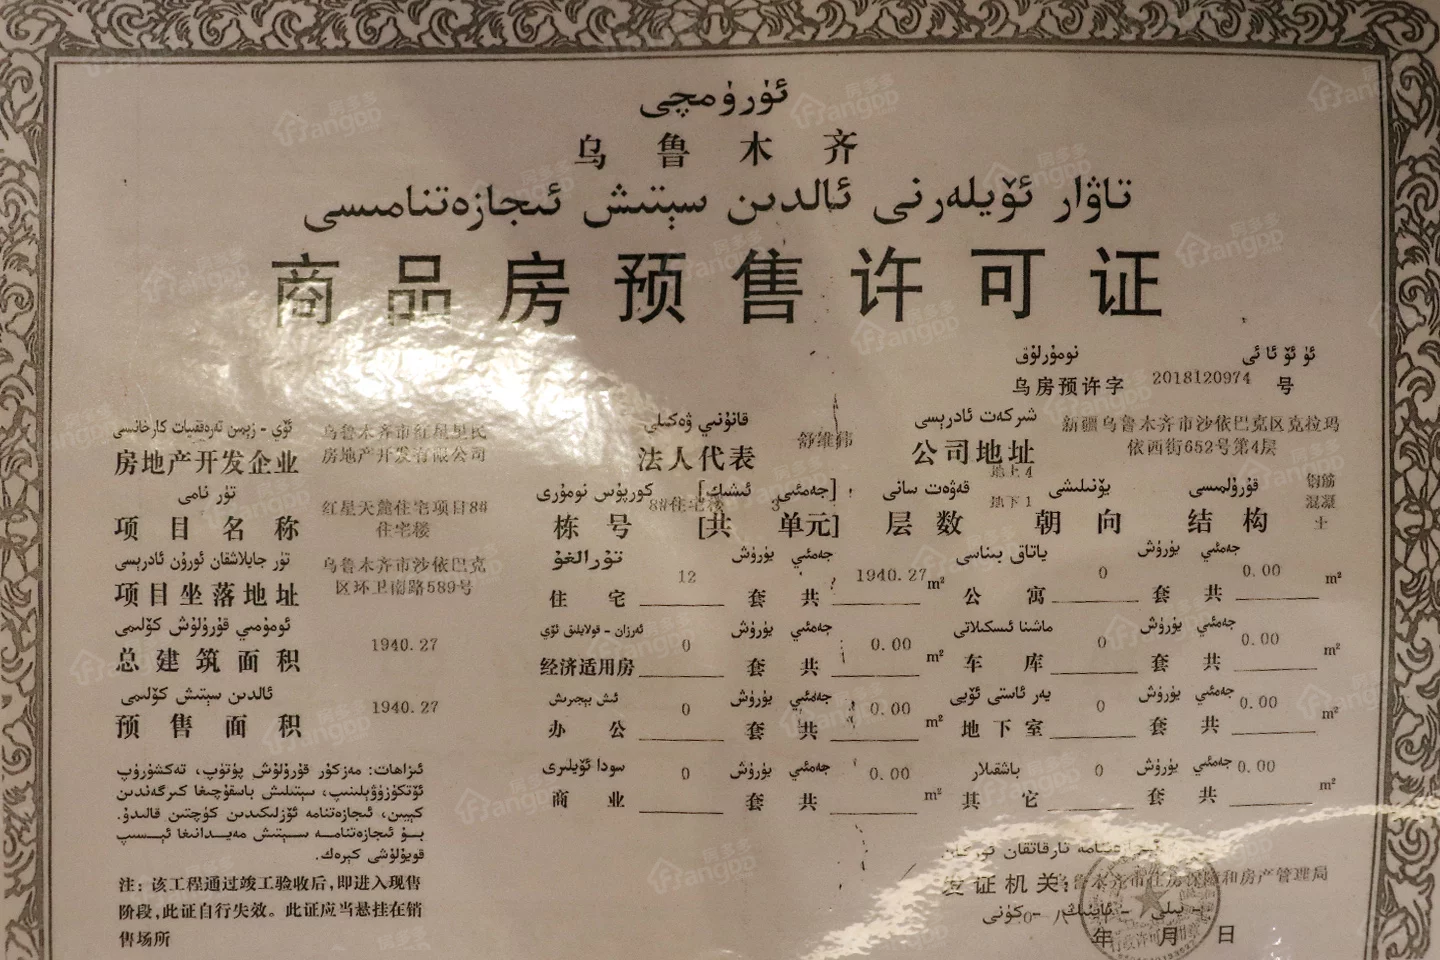 ئۈرۈمچى
乌鲁木齐
تاۋار ئۆيلەرنى ئالدىن سېتىش ئىجازەتنامىسى
商品房预售许可证
نومۇرلۇق ئۈ ئۆ ئا ئى
乌房预许字 2018120974 号
ئۆي - زېمىن تەرەققىيات كارخانىسى
房地产开发企业
乌鲁木齐市红星里民
房地产开发有限公司
قانۇنىي ۋەكىلى
法人代表
舒维纬
شىركەت ئادرېسى
公司地址
新疆乌鲁木齐市沙依巴克区克拉玛
依西街652号第4层
تۈر نامى
项目名称
红星天麓住宅项目8#
住宅楼
كورپۇس نومۇرى [جەمئىي ئىشىك]
栋号 8#住宅楼 [共 3 单元]
قەۋەت سانى
层数
地上4
地下1
يۆنىلىشى
朝向
قۇرۇلمىسى
结构
钢筋
混凝
土
تۈر جايلاشقان ئورۇن ئادرېسى
项目坐落地址
乌鲁木齐市沙依巴克
区环卫南路589号
تۇرالغۇ يۈرۈش جەمئىي
住宅 12 套 共 1940.27 m²
ياتاق بىناسى يۈرۈش جەمئىي
公寓 0 套 共 0.00 m²
ئومۇمىي قۇرۇلۇش كۆلىمى
总建筑面积 1940.27
ئەرزان - قولايلىق ئۆي يۈرۈش جەمئىي
经济适用房 0 套 共 0.00 m²
ماشىنا ئىسكىلاتى يۈرۈش جەمئىي
车库 0 套 共 0.00 m²
ئالدىن سېتىش كۆلىمى
预售面积 1940.27
ئىش بېجىرىش يۈرۈش جەمئىي
办公 0 套 共 0.00 m²
يەر ئاستى ئۆيى يۈرۈش جەمئىي
地下室 0 套 共 0.00 m²
سودا ئۆيلىرى يۈرۈش جەمئىي
商业 0 套 共 0.00 m²
باشقىلار يۈرۈش جەمئىي
其它 0 套 共 0.00 m²
ئىزاھات: مەزكۇر قۇرۇلۇش پۈتۈپ، تەكشۈرۈپ
ئۆتكۈزۈۋېلىنىپ، سېتىلىش باسقۇچىغا كىرگەندىن
كېيىن، ئىجازەتنامە ئۆزلىكىدىن كۈچتىن قالىدۇ.
بۇ ئىجازەتنامە سېتىش مەيدانىغا ئېسىپ
قويۇلۇشى كېرەك.
注：该工程通过竣工验收后，即进入现售
阶段，此证自行失效。此证应当悬挂在销
售场所
ئىجازەتنامە تارقاتقان ئورگان
发证机关：乌鲁木齐市住房保障和房产管理局
- يىلى - ئاينىڭ - كۈنى
年 月 日